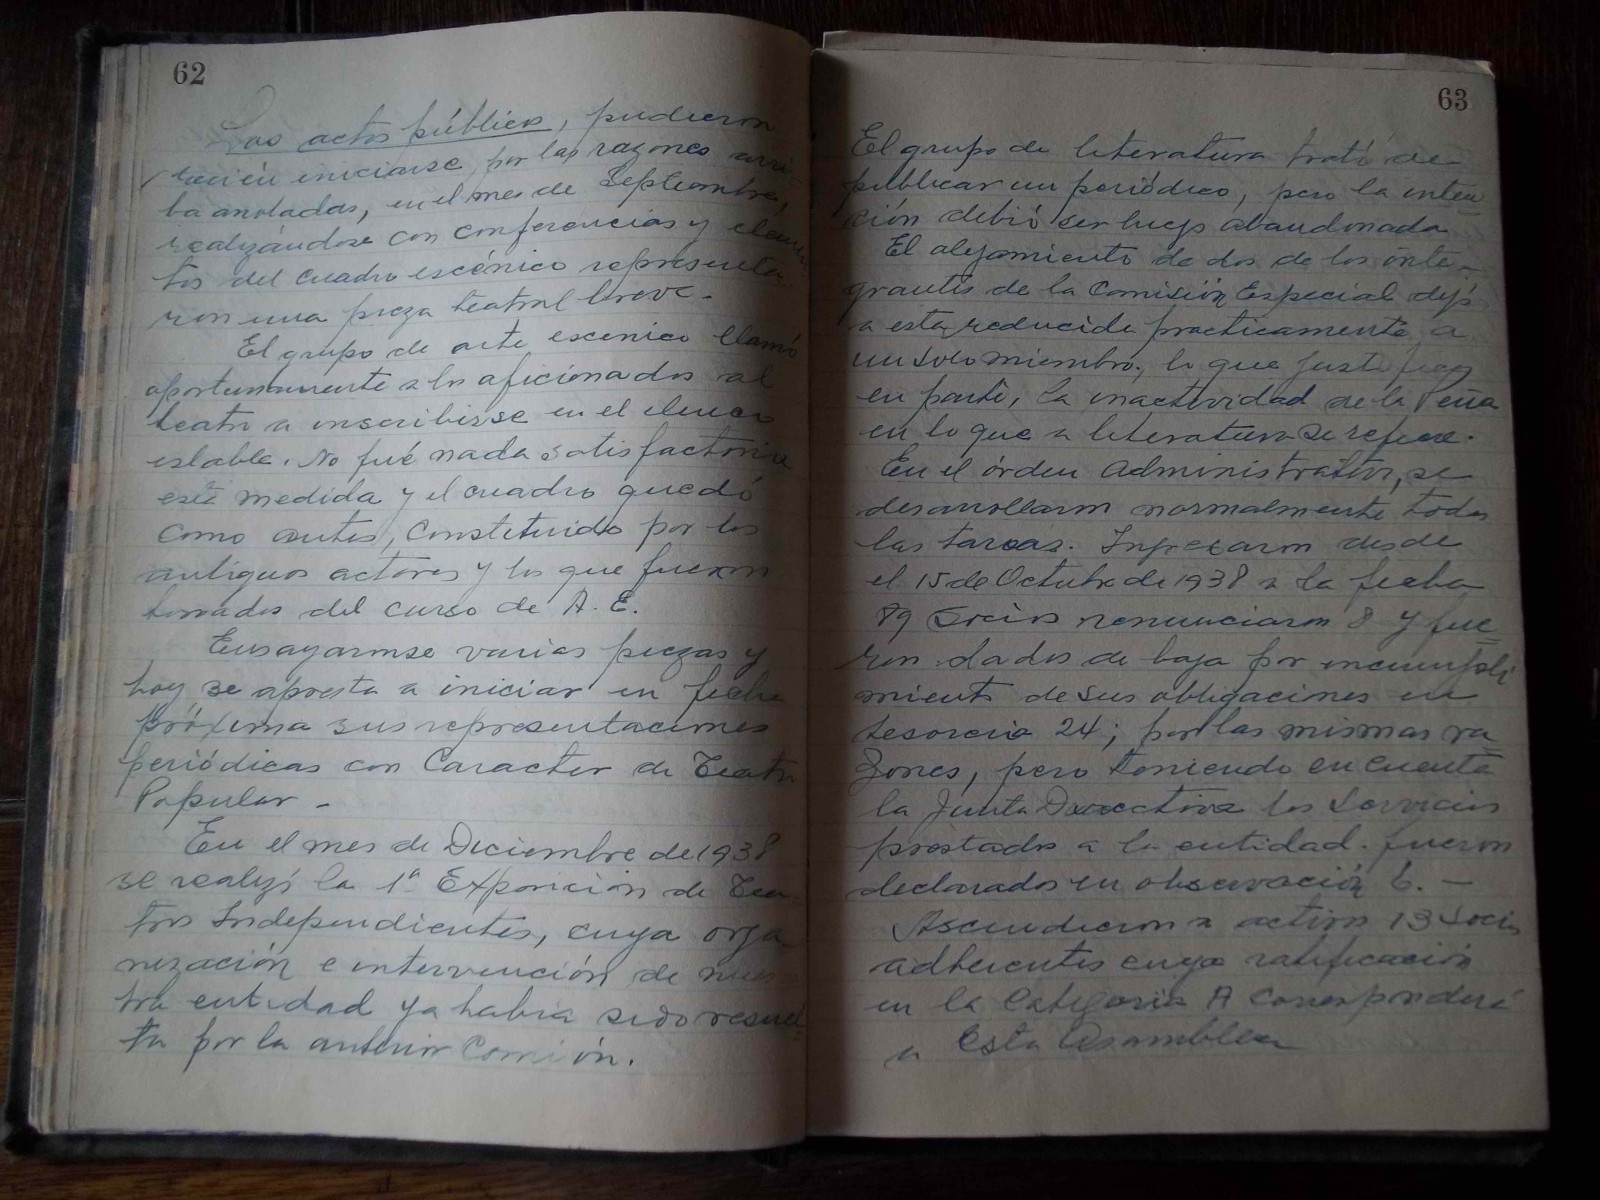 62
Los actos públicos, pudieron
recién iniciarse, por las razones arri-
ba anotadas, en el mes de Septiembre,
realizándose con conferencias y elemen-
tos del cuadro escénico representa-
ron una pieza teatral breve.-
El grupo de arte escenico llamó
oportunamente a los aficionados al
teatro a inscribirse en el elenco
estable. No fué nada satisfactoria
esta medida y el cuadro quedó
como antes, constituido por los
antiguos actores y los que fueron
tomados del curso de A. E.
Ensayaronse varias piezas y
hoy se apresta a iniciar en fecha
próxima sus representaciones
periódicas con Caracter de Teatro
Popular -
En el mes de Diciembre de 1938
se realizó la 1ª Exposición de Tea-
tros Independientes, cuya orga-
nización e intervención de nues-
tra entidad ya habia sido resuel
ta por la anterior Comición.
63
El grupo de literatura trató de
publicar un periódico, pero la inten-
ción debió ser luego abandonada
El alejamiento de dos de los inte-
grantes de la Comisión Especial dejó
a esta reducida practicamente a
un solo miembro, lo que justifica
en parte, la inactividad de la Peña
en lo que a literatura se refiere.
En el órden administrativo, se
desarrollaron normalmente todas
las tareas. Ingresaron desde
el 15 de Octubre de 1938 a la fecha
89 socios renunciaron 8 y fue-
ron dados de baja por incumpli
miento de sus obligaciones en
tesoreria 24; por las mismas ra-
zones, pero teniendo en cuenta
la Junta Directiva los servicios
prestados a la entidad. fueron
declarados en observación 6. -
Ascendieron a activos 13 socios
adherentes cuya ratificación
en la Categoria A corresponderá
a esta Asamblea